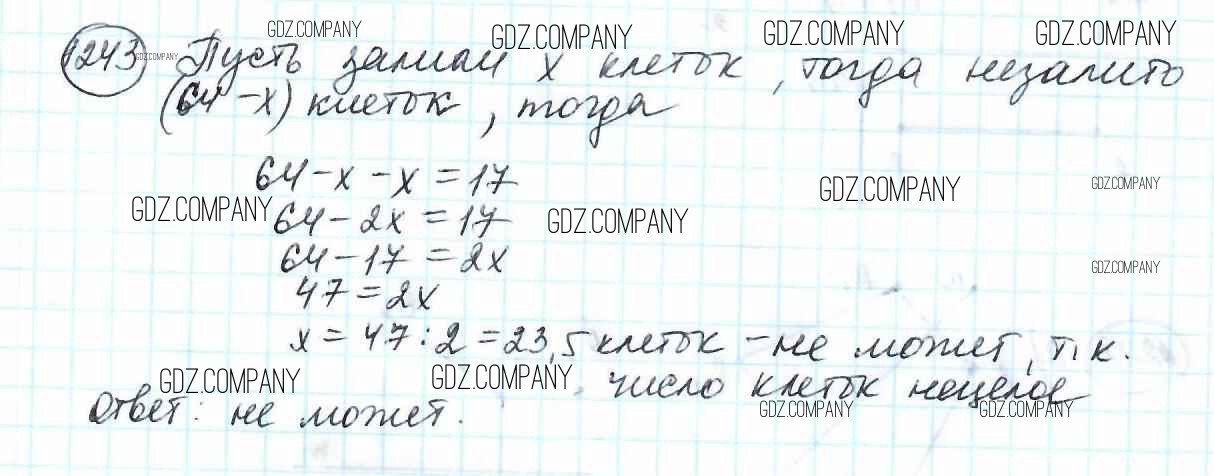 1243 Пусть залили x клеток, тогда незалито
(64 - x) клеток, тогда
64 - x - x = 17
64 - 2x = 17
64 - 17 = 2x
47 = 2x
x = 47 : 2 = 23,5 клеток - не может, т.к.
число клеток нецелое
Ответ: не может.
GDZ.COMPANY
GDZ.COMPANY
GDZ.COMPANY
GDZ.COMPANY
GDZ.COMPANY
GDZ.COMPANY
GDZ.COMPANY
GDZ.COMPANY
GDZ.COMPANY
GDZ.COMPANY
GDZ.COMPANY
GDZ.COMPANY
GDZ.COMPANY
GDZ.COMPANY